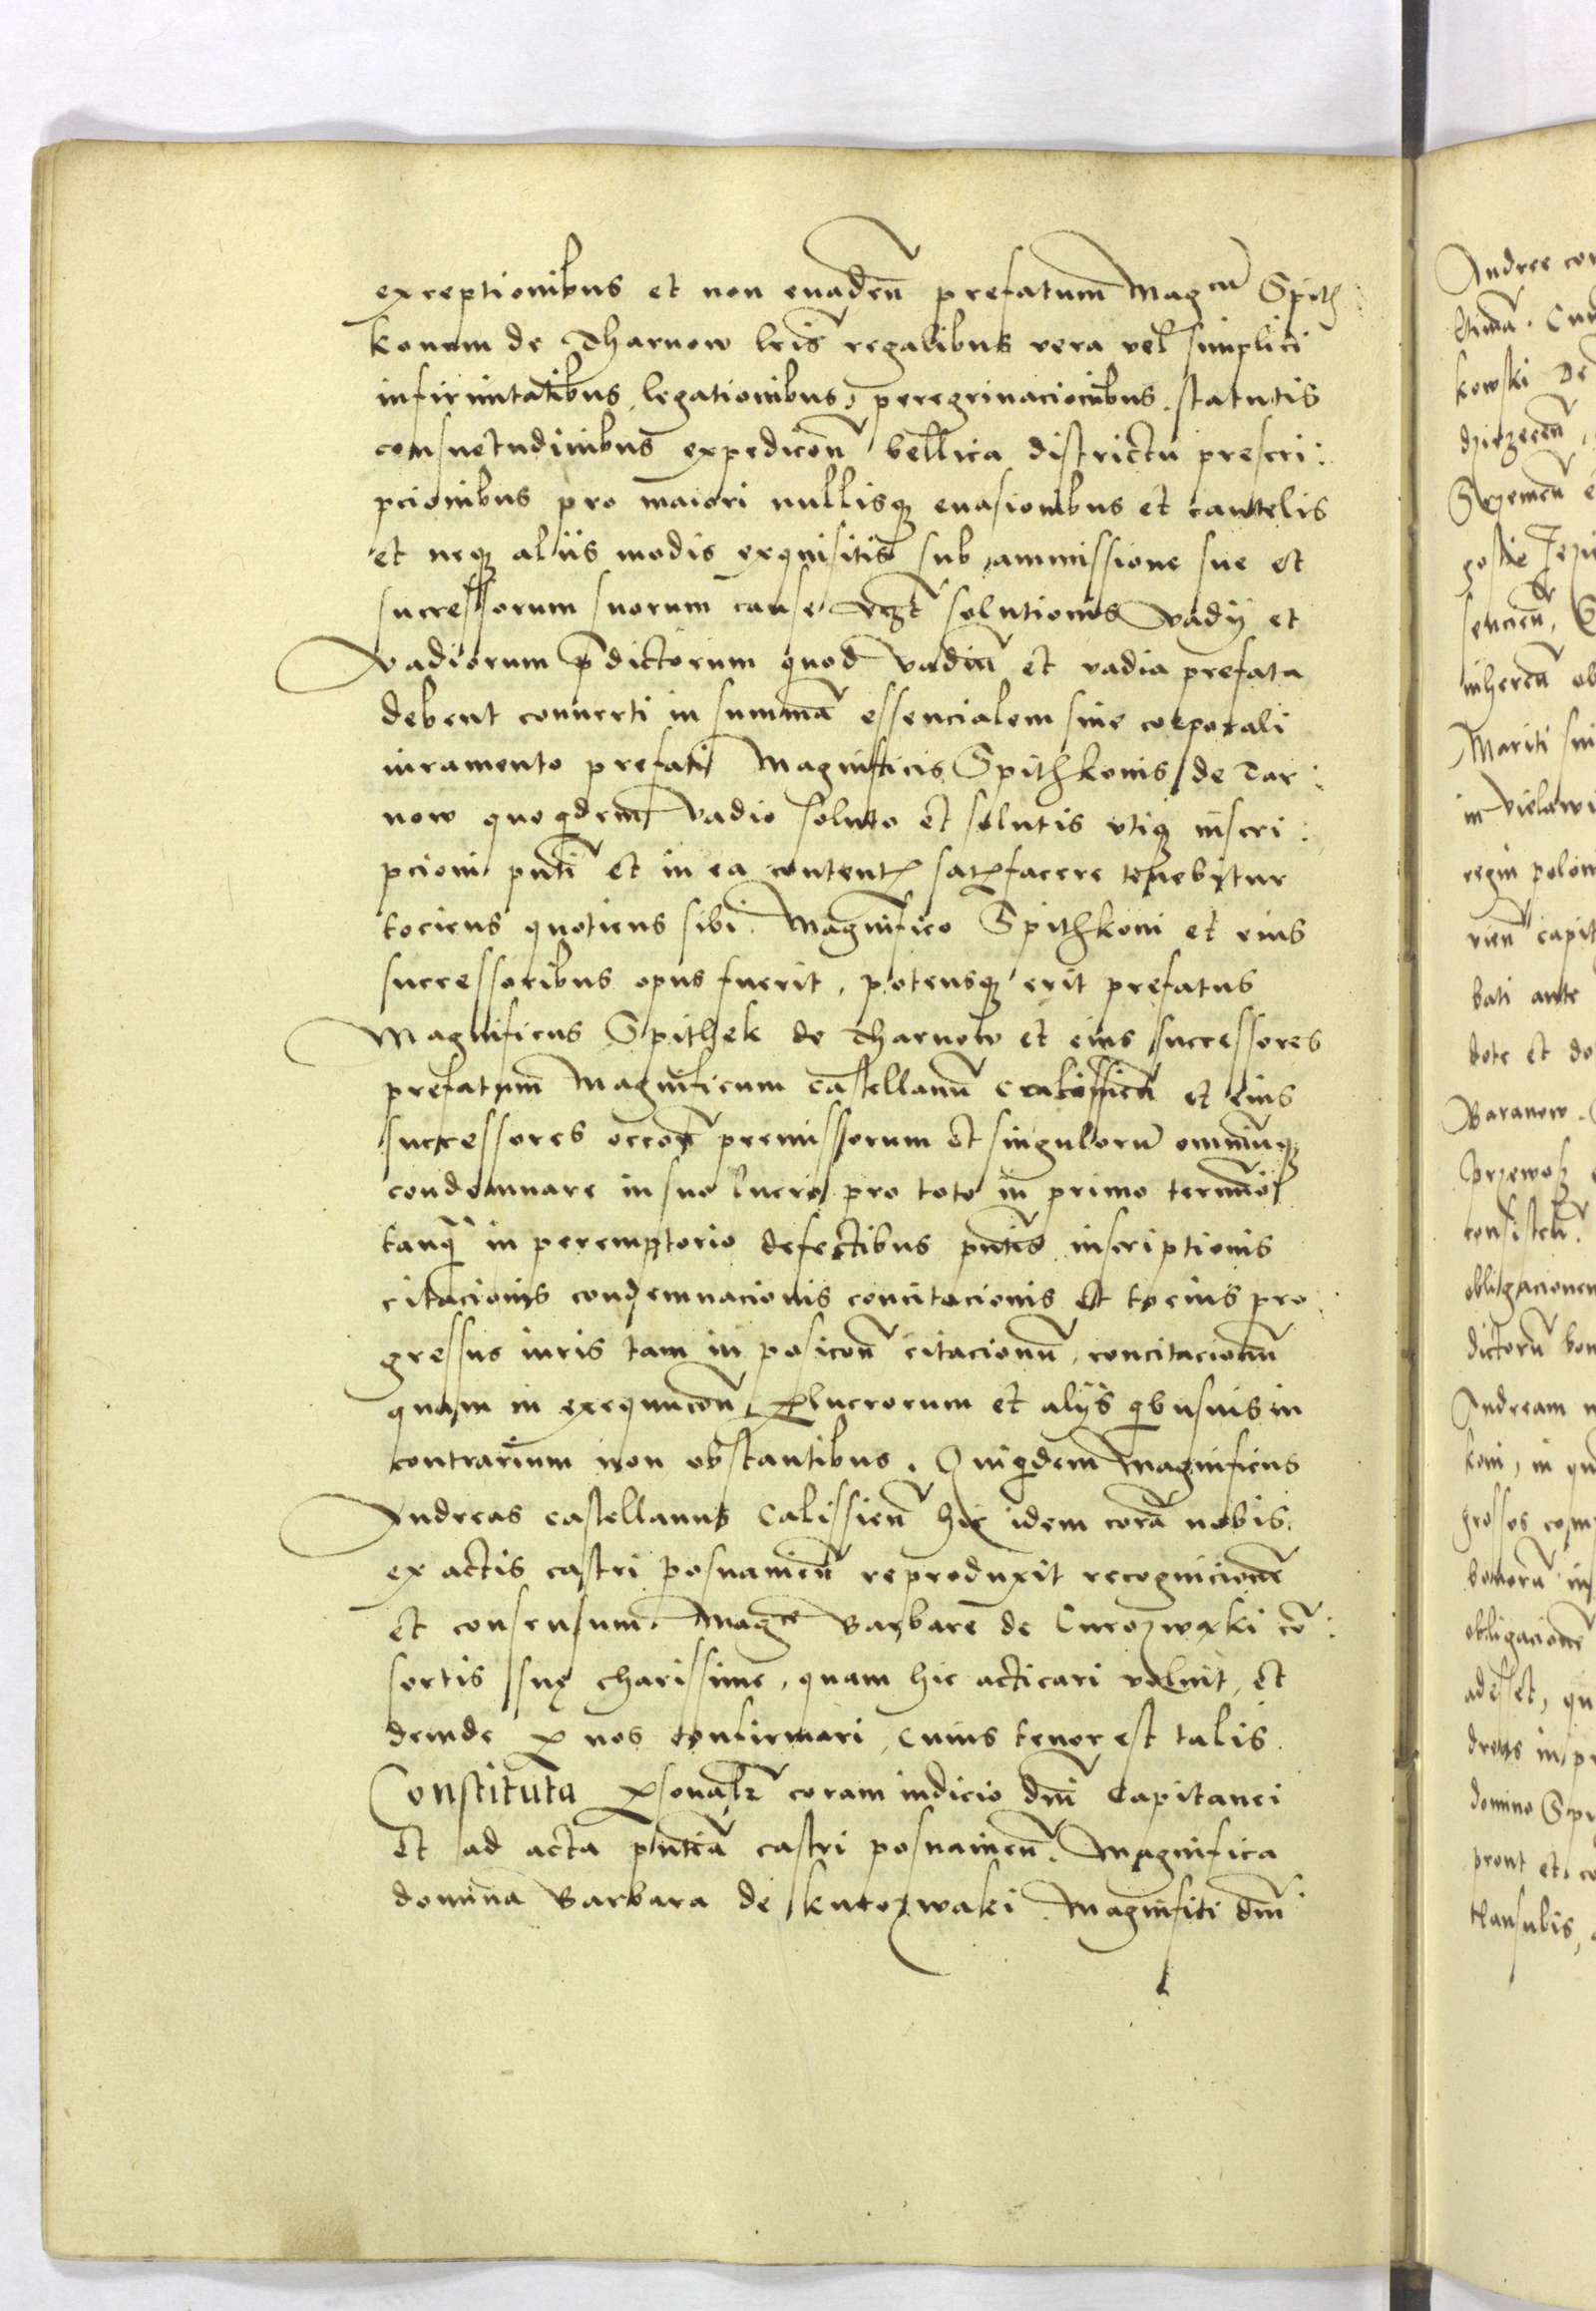 exceptionibus et non evaden̄ prefatum Magcū Spith
konem de Tharnow lr̄is regalibus vera vel simplici
infirmitatibus, legationibus, peregrinacionibus, statutis
consuetudinibus expedicon̄ bellica districtu prescri:
pcionibus pro maiori nullisq; evasionibus et cautelis
et neq; aliis modis exquisitis sub ammissione sue et
successorum suorum cause solutionis vadÿ et
vadiorum p̄dictorum quod vadiū et vadia prefata
debent converti in summā essencialem sine corporali
iuramento prefati Magnificis Spithkonis de Tar:
now quoq̇dem vadio soluto et solutis utiq; inscri:
pcioni pn̄ti et in ea content; satisfacere tenebitur
tociens quotiens sibi Magnifico Spithkoni et eius
successoribus opus fuerit, potensq; erit prefatus
Magnificus Spithek de Tharnow et eius successores
prefatum Magnificum castellanū et eius
successores occon̄e premissorum et singulorū omniūq;
condemnare in suo lucro pro toto in primo termino
tanq̄ in peremptorio defectibus pn̄tis inscriptionis
citacionis condemnacionis concitacionis et tocius pro:
gressus iuris tam in posicon̄ citacionū, concitacionū
quam in exequucon̄ perlucrorum et alÿs q̇busvis in
contrarium non obstantibus. Quiq̇dem Magnificus
Andreas castellanus Calissien̄ hic idem corā nobis
ex actis castri posnanien̄ reproduxit recognicionē
et consensum Magce Barbare de Curozwaki cō:
sortis suę charissime, quam hic acticari voluit, et
deinde per nos confirmari, cuius tenor est talis.
Constituta personalr̄ coram iudicio dn̄i Capitanei
et ad acta pn̄tiā castri posnanien̄. Magnifica
domina Barbara de kurozwaki Magnifici dn̄i
Andree
kowski De
Mariti sui
regni
vien̄
bati ante
dote et do
Baranow.
Przewoz
consisten̄.
obligacionem
dictorū bon
Andream
koni, in qu
grossos com
bonorū
obligacionē
adesset, qu
domno Spi
prout et co
clausulis,